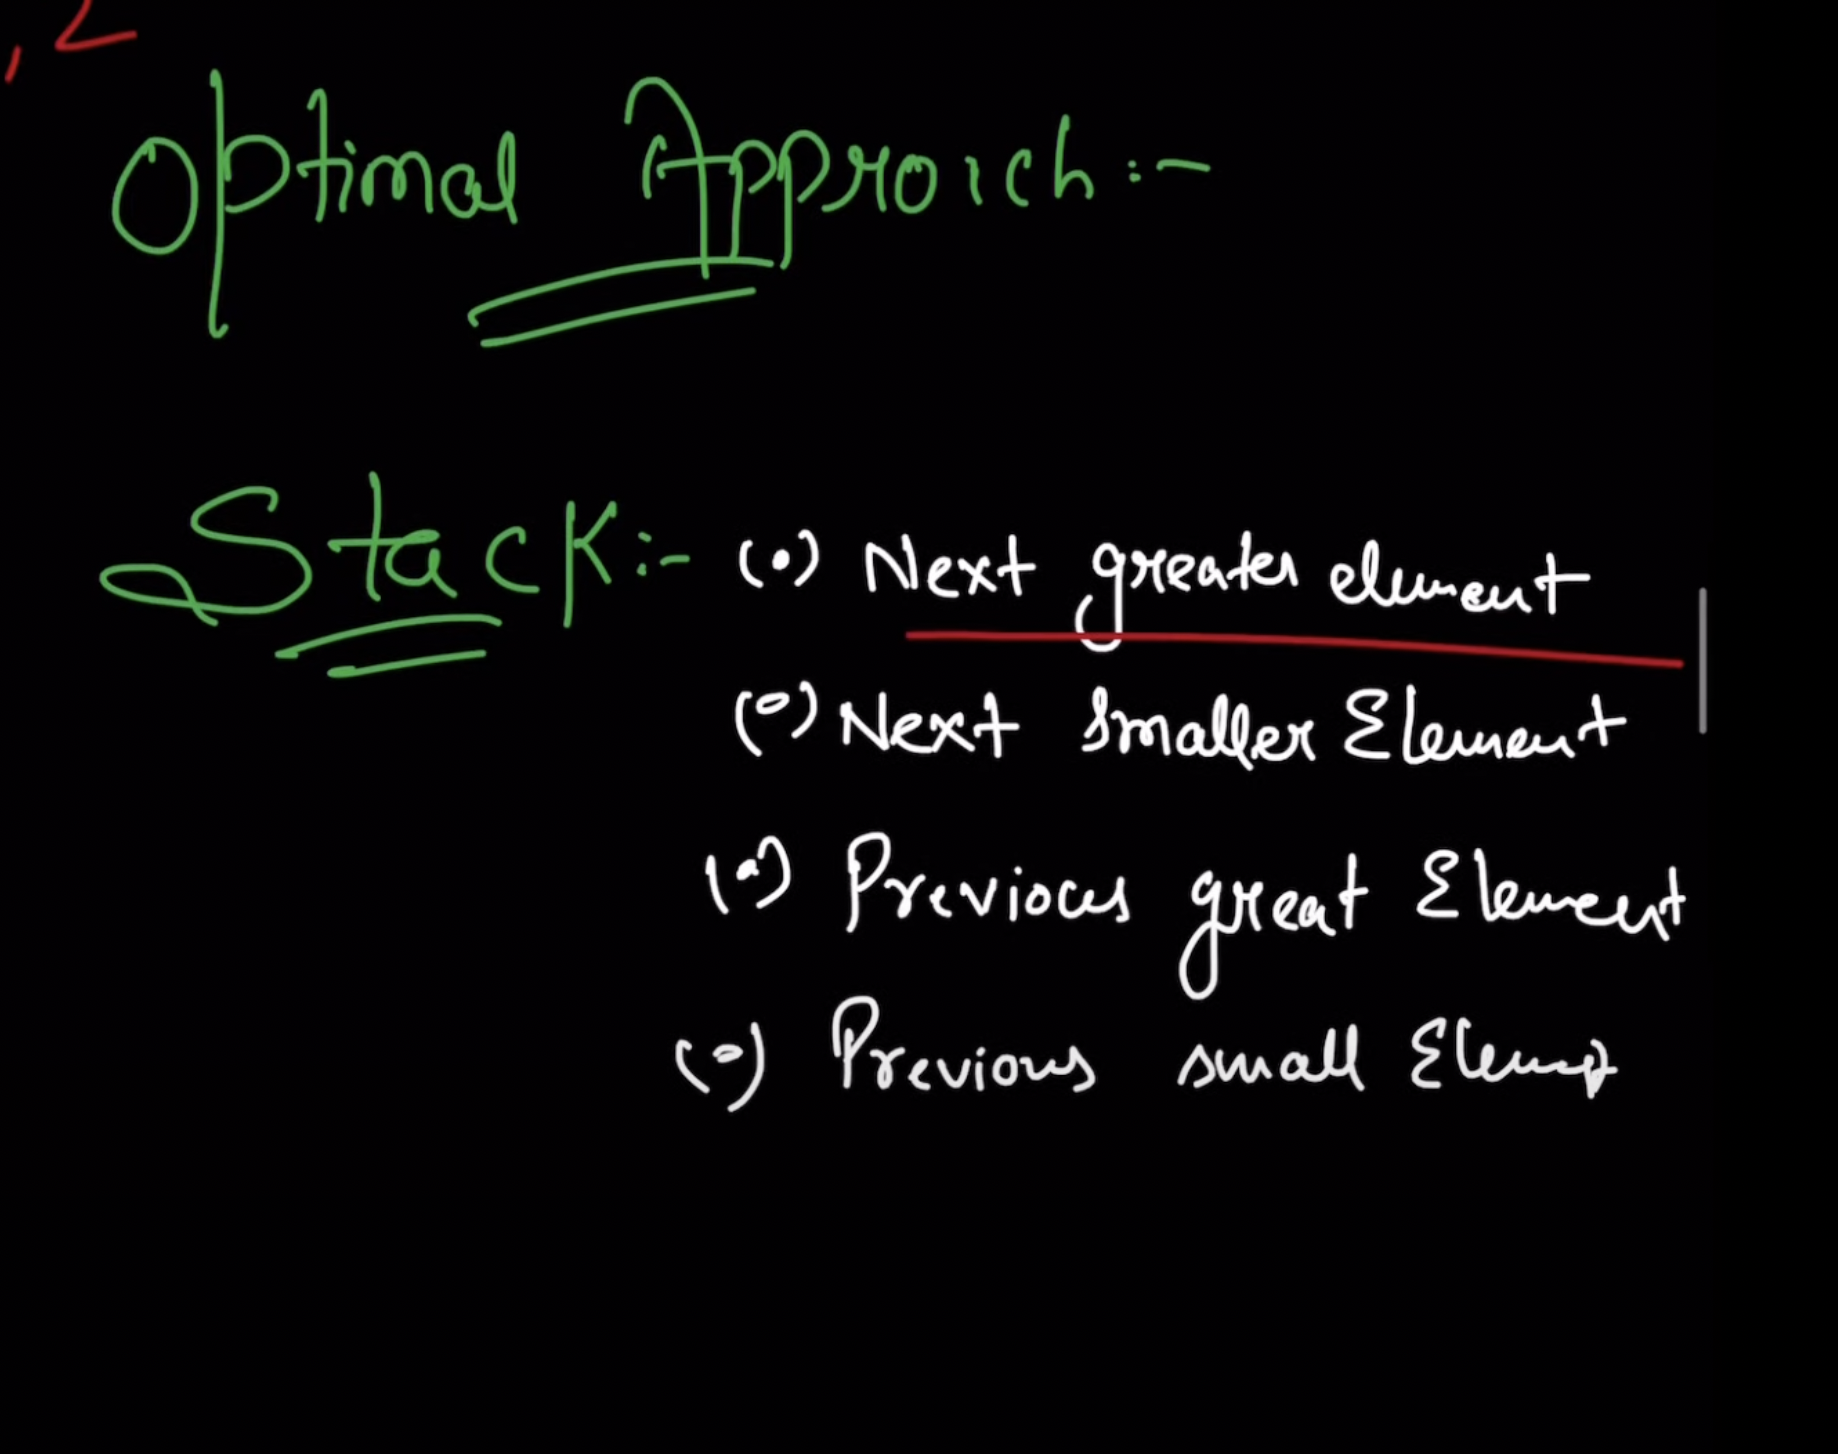 , 2
Optimal Approach:-
Stack:- (•) Next greater element
(•) Next Smaller Element
(•) Previous great Element
(•) Previous small